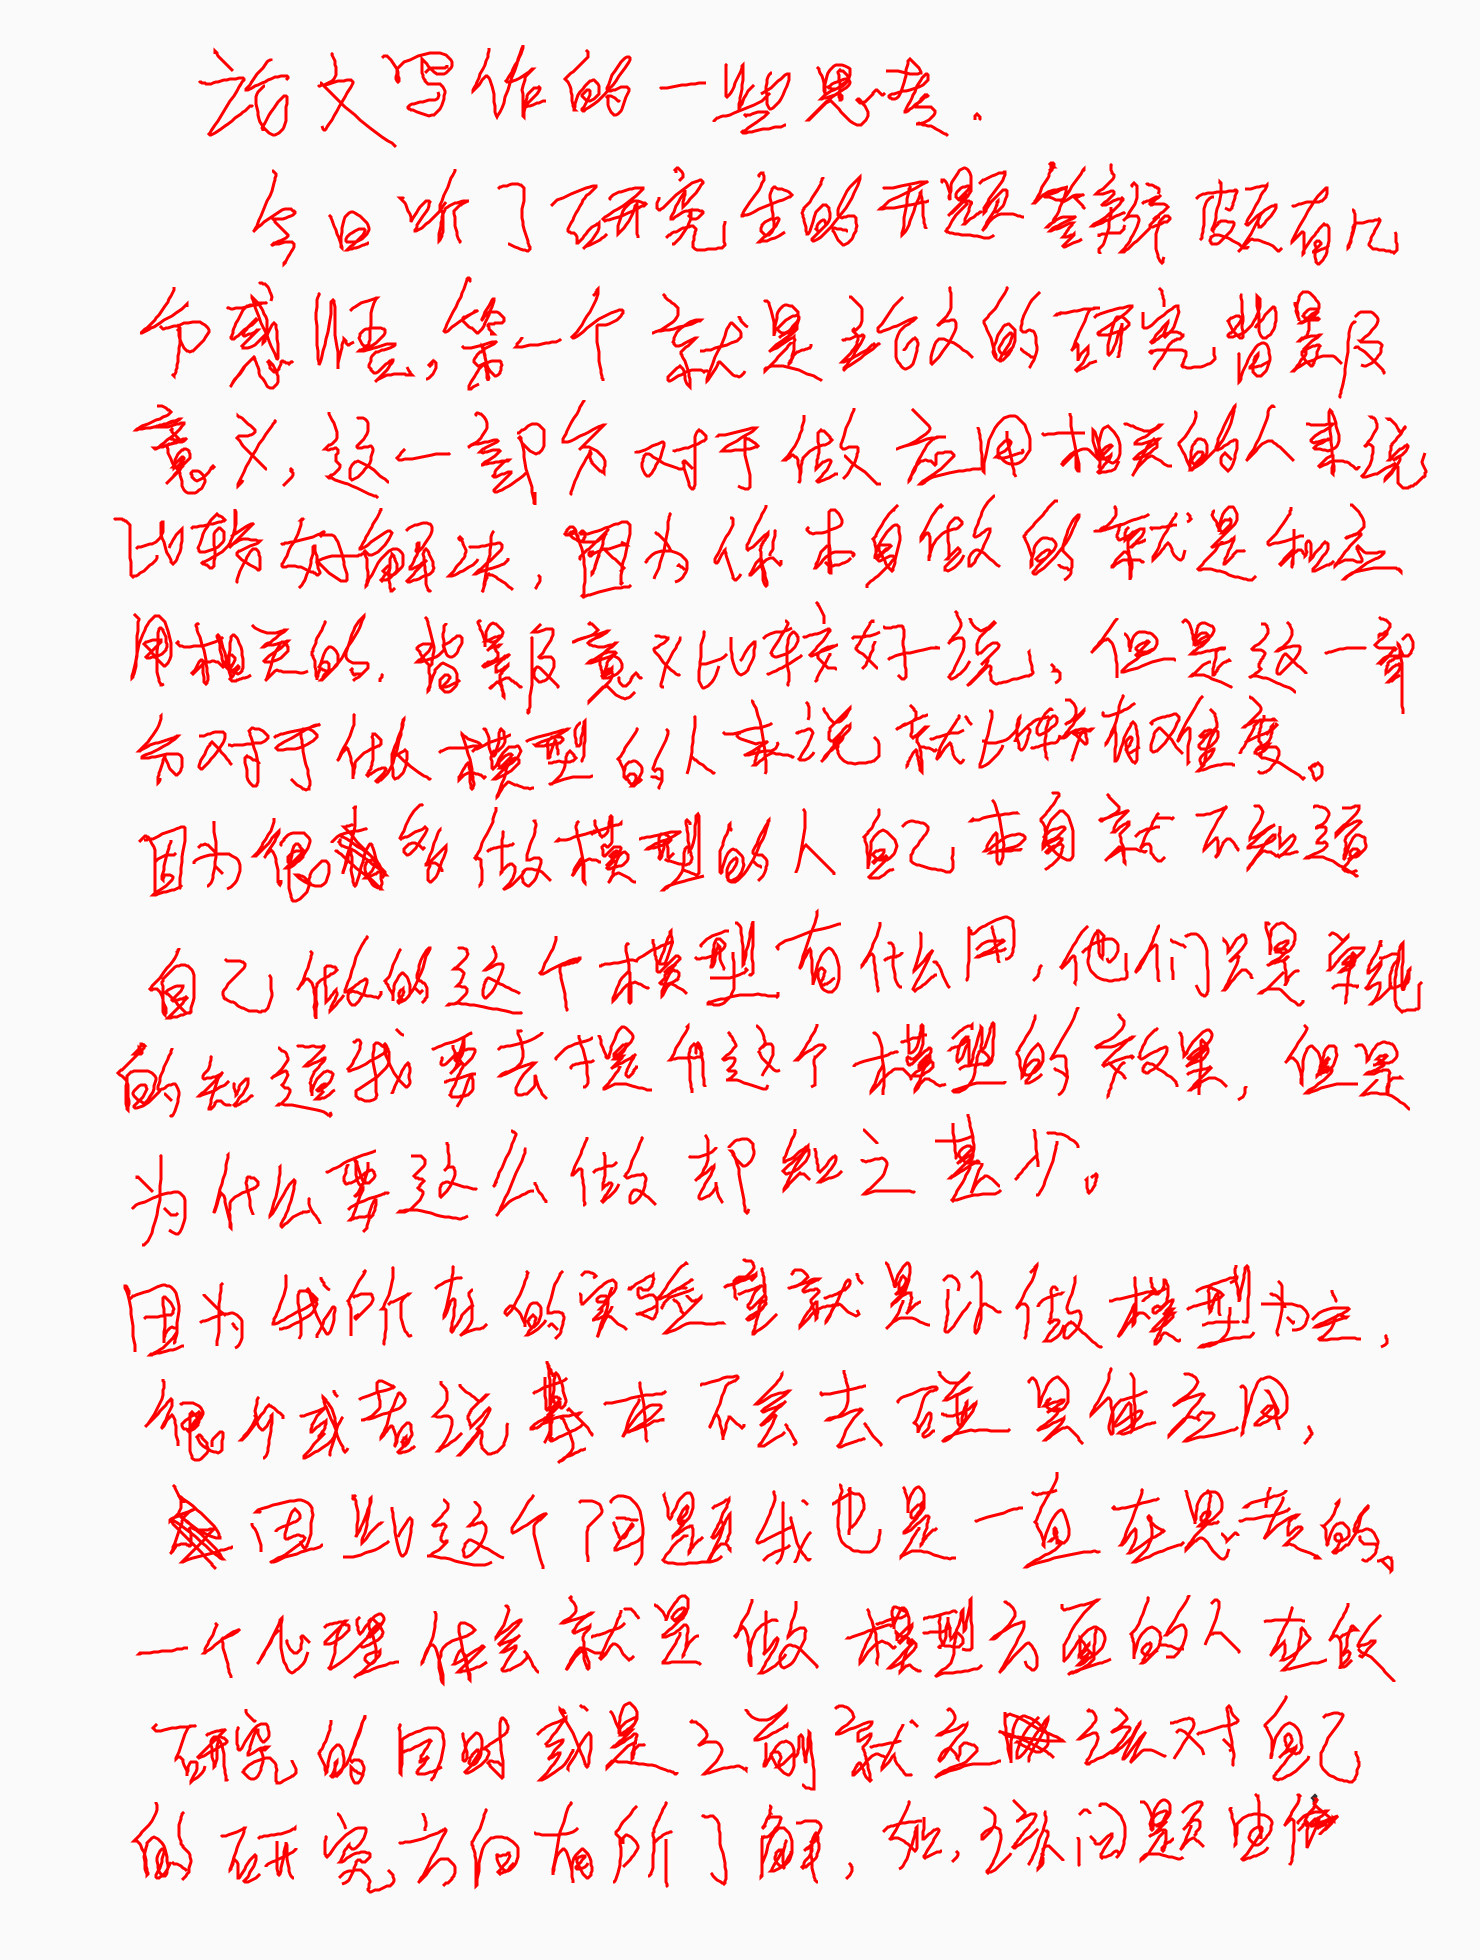 论文写作的一些思考.
今日听了研究生的开题答辩颇有几
分感悟,第一个就是论文的研究背景及
意义,这一部分对于做应用相关的人来说
比较好解决,因为你本身做的就是和应
用相关的.背景及意义比较好说,但是这一部
分对于做模型的人来说就比较有难度。
因为很多做模型的人自己本身就不知道
自己做的这个模型有什么用,他们只是单纯
的知道我要去提升这个模型的效果,但是
为什么要这么做却知之甚少。
因为我所在的实验室就是以做模型为主,
很少或者说基本不会去碰具体应用,
因此这个问题我也是一直在思考的。
一个心理体会就是做模型方面的人在做
研究的同时或是之前就应该对自己
的研究方向有所了解,如,该问题由